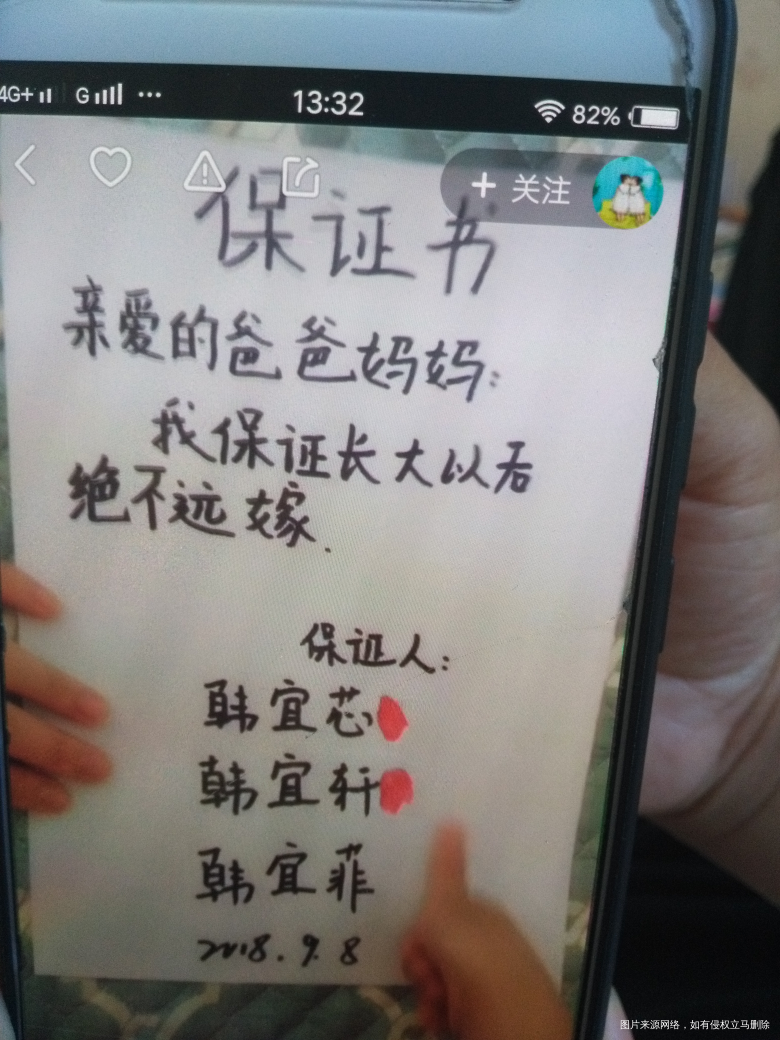 4G+ G ... 13:32 82%
+ 关注
保证书
亲爱的爸爸妈妈:
我保证长大以后
绝不远嫁.
保证人:
韩宜芯
韩宜轩
韩宜菲
2018.9.8
图片来源网络，如有侵权立马删除